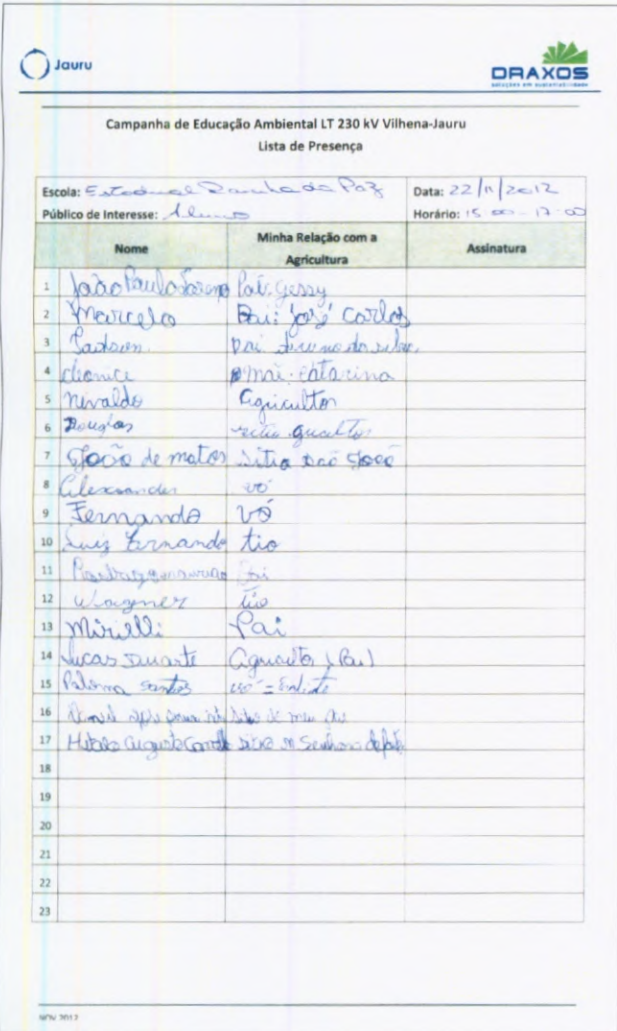 Jauru
DRAXOS
soluções em sustentabilidade
Campanha de Educação Ambiental LT 230 kV Vilhena-Jauru
Lista de Presença
Escola: Estadual Rainha da Paz Data: 22/11/2012
Público de Interesse: Aluno Horário: 15:00 - 17:00
Nome Minha Relação com a Agricultura Assinatura
1 João Paulo Pai: Gessy
2 Marcelo Pai: José Carlos
3 Pai
4 cleonice mãi: catarina
5 nivaldo agricultor
6 Douglas
7 João de matos sitio
8 Alexsander vó
9 Fernando vó
10 Luiz Fernando tio
11 Pai
12 Wagner tio
13 Mirielli Pai
14 Lucas Duarte agricultor (Pai)
15 Paloma Santos vó =
16 sitio de meu
17 Augusto sitio Senhora
18
19
20
21
22
23
NOV 2012